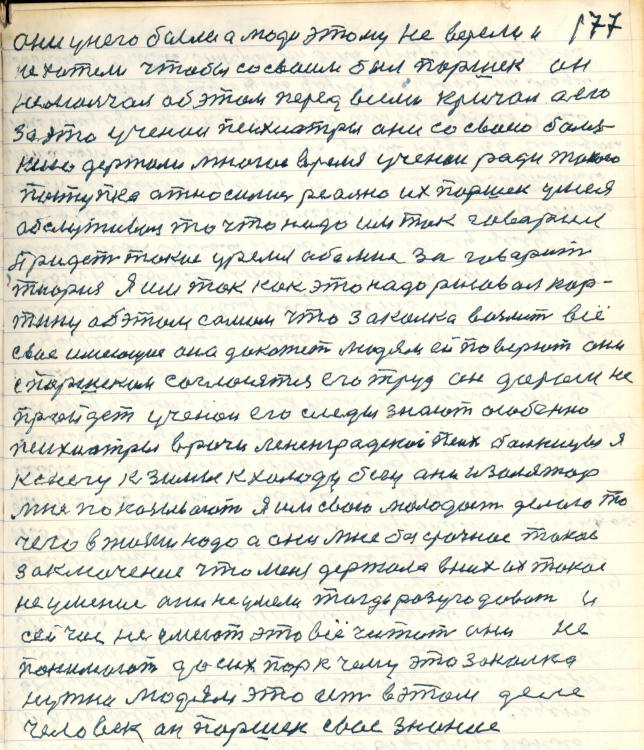 177
они у него были а люди этому не верели и
не хотели чтобы со своим был паршек он
немолчал об этом перед всеми кричал а его
за это ученои психиатры они со свою боль-
кию держали многое время ученои ради такого
поступка относились реално их паршек умел
обслуживал то что надо им так говарил
придет такое время обо мне за говарит
тиория Я им так как это надо рисовал кар-
тину об этом самом что закалка возмет всё
свое имеющие она докажет людям ей поверют они
с паршеком согласятся его труд он даром не
пройдет ученои его следы знают особенно
психиатры врачи ленинградской псих больницы я
к снегу к зимы к холоду бегу они изолятор
мне показывают Я им свою молодост делаю то
чего в жизни надо а они мне бесрочное такое
заключение что меня держала в них их такое
не умение они не умели тогда разугодоват и
сейчас не умеют это всё читают они не
понимают до сих пор к чему это закалка
нужна людям это ест в этом деле
человек он паршек свое знание